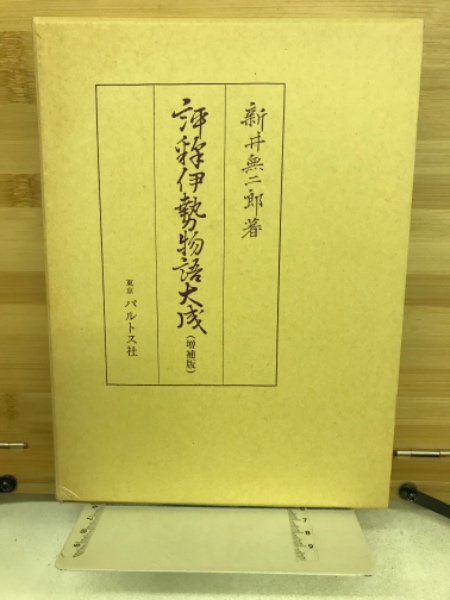 新井無二郎著
評釈伊勢物語大成
(増補版)
東京 バルトス社
6 7 8 9